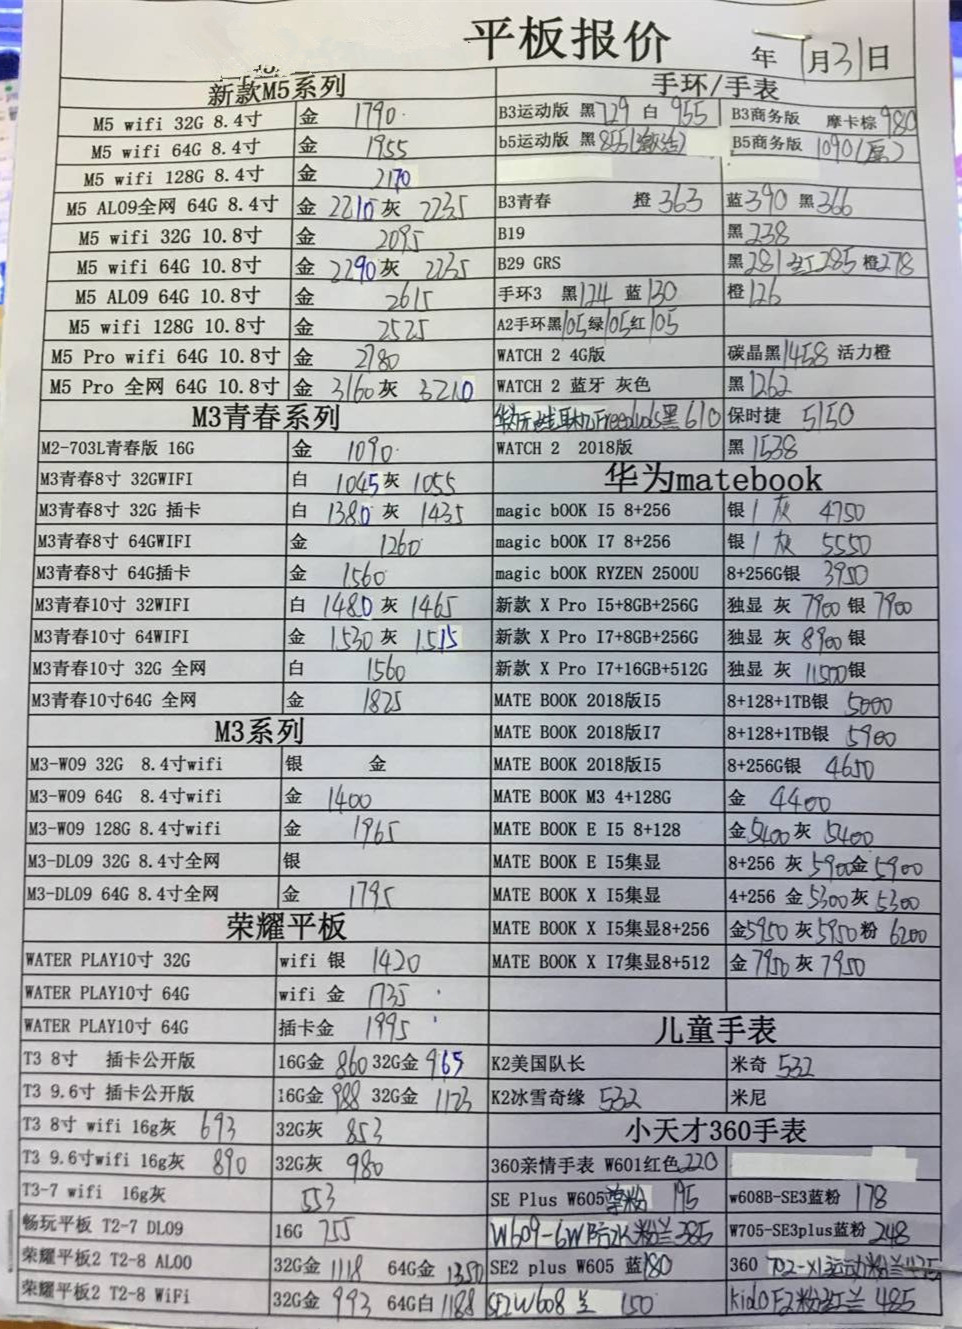 平板报价
年 7月31日
新款M5系列
M5 wifi 32G 8.4寸 金 1790
M5 wifi 64G 8.4寸 金 1955
M5 wifi 128G 8.4寸 金 2170
M5 AL09全网 64G 8.4寸 金 2210 灰 2235
M5 wifi 32G 10.8寸 金 2095
M5 wifi 64G 10.8寸 金 2290 灰 2235
M5 AL09 64G 10.8寸 金 2615
M5 wifi 128G 10.8寸 金 2525
M5 Pro wifi 64G 10.8寸 金 2780
M5 Pro 全网 64G 10.8寸 金 3160 灰 3210
M3青春系列
M2-703L青春版 16G 金 1090
M3青春8寸 32GWIFI 白 1045 灰 1055
M3青春8寸 32G 插卡 白 1380 灰 1435
M3青春8寸 64GWIFI 金 1260
M3青春8寸 64G插卡 金 1560
M3青春10寸 32WIFI 白 1480 灰 1465
M3青春10寸 64WIFI 金 1530 灰 1515
M3青春10寸 32G 全网 白 1560
M3青春10寸64G 全网 金 1825
M3系列
M3-W09 32G 8.4寸wifi 银 金
M3-W09 64G 8.4寸wifi 金 1400
M3-W09 128G 8.4寸wifi 金 1965
M3-DL09 32G 8.4寸全网 银
M3-DL09 64G 8.4寸全网 金 1795
荣耀平板
WATER PLAY10寸 32G wifi 银 1420
WATER PLAY10寸 64G wifi 金 1735
WATER PLAY10寸 64G 插卡金 1995
T3 8寸 插卡公开版 16G金 860 32G金 965
T3 9.6寸 插卡公开版 16G金 988 32G金 1123
T3 8寸 wifi 16g灰 693 32G灰 853
T3 9.6寸wifi 16g灰 890 32G灰 980
T3-7 wifi 16g灰 553
畅玩平板 T2-7 DL09 16G 755
荣耀平板2 T2-8 AL00 32G金 1118 64G金 1350
荣耀平板2 T2-8 WiFi 32G金 993 64G白 1188
手环/手表
B3运动版 黑 729 白 955 B3商务版 摩卡棕 980
b5运动版 黑 855 B5商务版 1090
B3青春 橙 363 蓝 390 黑 366
B19 黑 238
B29 GRS 黑 281 红 285 橙 278
手环3 黑 124 蓝 130 橙 126
A2手环黑 105 绿 105 红 105
WATCH 2 4G版 碳晶黑 1458 活力橙
WATCH 2 蓝牙 灰色 黑 1262
华为无线耳机Freebuds黑 610 保时捷 5150
WATCH 2 2018版 黑 1538
华为matebook
magic bOOK I5 8+256 银 / 灰 4750
magic bOOK I7 8+256 银 / 灰 5550
magic bOOK RYZEN 2500U 8+256G银 3950
新款 X Pro I5+8GB+256G 独显 灰 7900 银 7900
新款 X Pro I7+8GB+256G 独显 灰 8900 银
新款 X Pro I7+16GB+512G 独显 灰 11500 银
MATE BOOK 2018版I5 8+128+1TB银 5000
MATE BOOK 2018版I7 8+128+1TB银 5900
MATE BOOK 2018版I5 8+256G银 4650
MATE BOOK M3 4+128G 金 4400
MATE BOOK E I5 8+128 金 5400 灰 5400
MATE BOOK E I5集显 8+256 灰 5900 金 5900
MATE BOOK X I5集显 4+256 金 5300 灰 5300
MATE BOOK X I5集显8+256 金 5950 灰 5950 粉 6200
MATE BOOK X I7集显8+512 金 7950 灰 7950
儿童手表
K2美国队长 米奇 532
K2冰雪奇缘 532 米尼
小天才360手表
360亲情手表 W601红色 220
SE Plus W605 粉 195 w608B-SE3蓝粉 178
W609-6W防水 粉兰 385 W705-SE3plus蓝粉 248
SE2 plus W605 蓝 180 360 702-X1运动粉兰
SE2W608 兰 150 kido F2粉红兰 485